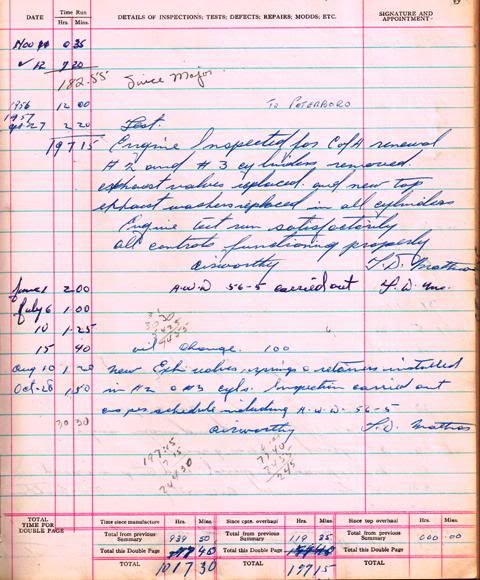 DATE Time Run Hrs. Mins. DETAILS OF INSPECTIONS; TESTS; DEFECTS; REPAIRS; MODDS; ETC. SIGNATURE AND APPOINTMENT
Nov 0 35
✓ 12 7 20
182.55 Since Major.
1956 12 00 To PETERBORO
1957
27 2 20 Test.
197 15 Engine Inspected for C of A renewal
#2 and #3 cylinders removed
exhaust valves replaced and new top
exhaust washers replaced in all cylinders
Engine test run satisfactorily
all controls functioning properly
airworthy
June 1 2.00 A.W.D 56-5 carried out
July 6 1.00
10 1.25
15 .40 oil change. 100
Aug 10 1.20 new Exh valves, springs & retainers installed
Oct-28 1.50 in #2 & #3 cyls. Inspection carried out
as per schedule including A.W.D. 56-5
30 30 airworthy
197.15
244.30
245
TOTAL TIME FOR DOUBLE PAGE
Time since manufacture Hrs. Mins. Since cpte. overhaul Hrs. Mins. Since top overhaul Hrs. Mins.
Total from previous Summary 939 50 Total from previous Summary 119 35 Total from previous Summary 000 .00
Total this Double Page 40 Total this Double Page 40 Total this Double Page
TOTAL 1017.30 TOTAL 197 15 TOTAL